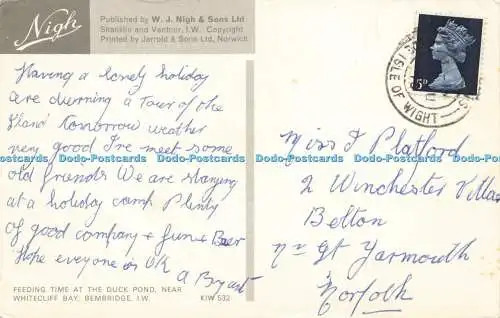 Nigh
Published by W. J. Nigh & Sons Ltd
Shanklin and Ventnor, I.W. Copyright
Printed by Jarrold & Sons Ltd, Norwich
5D
ISLE OF WIGHT
Having a lovely holiday
are durning a tour of the
Iland tomorrow weather
very good I've meet some
old friends We are staying
at a holiday camp Plenty
of good company + fun + Beer
Hope everyone is OK
A Bryant
Miss J Platford
2 Winchester Villas
Belton
nr Gt Yarmouth
Norfolk
FEEDING TIME AT THE DUCK POND, NEAR
WHITECLIFF BAY, BEMBRIDGE, I.W.
KIW 532
Dodo-Postcards Dodo-Postcards Dodo-Postcards Dodo-Postcards Dodo-Postcards